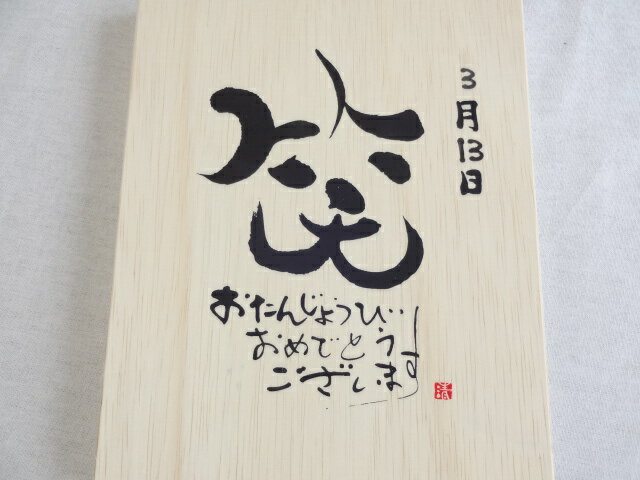 3月13日
笑
おたんじょうび
おめでとう
ございます
清